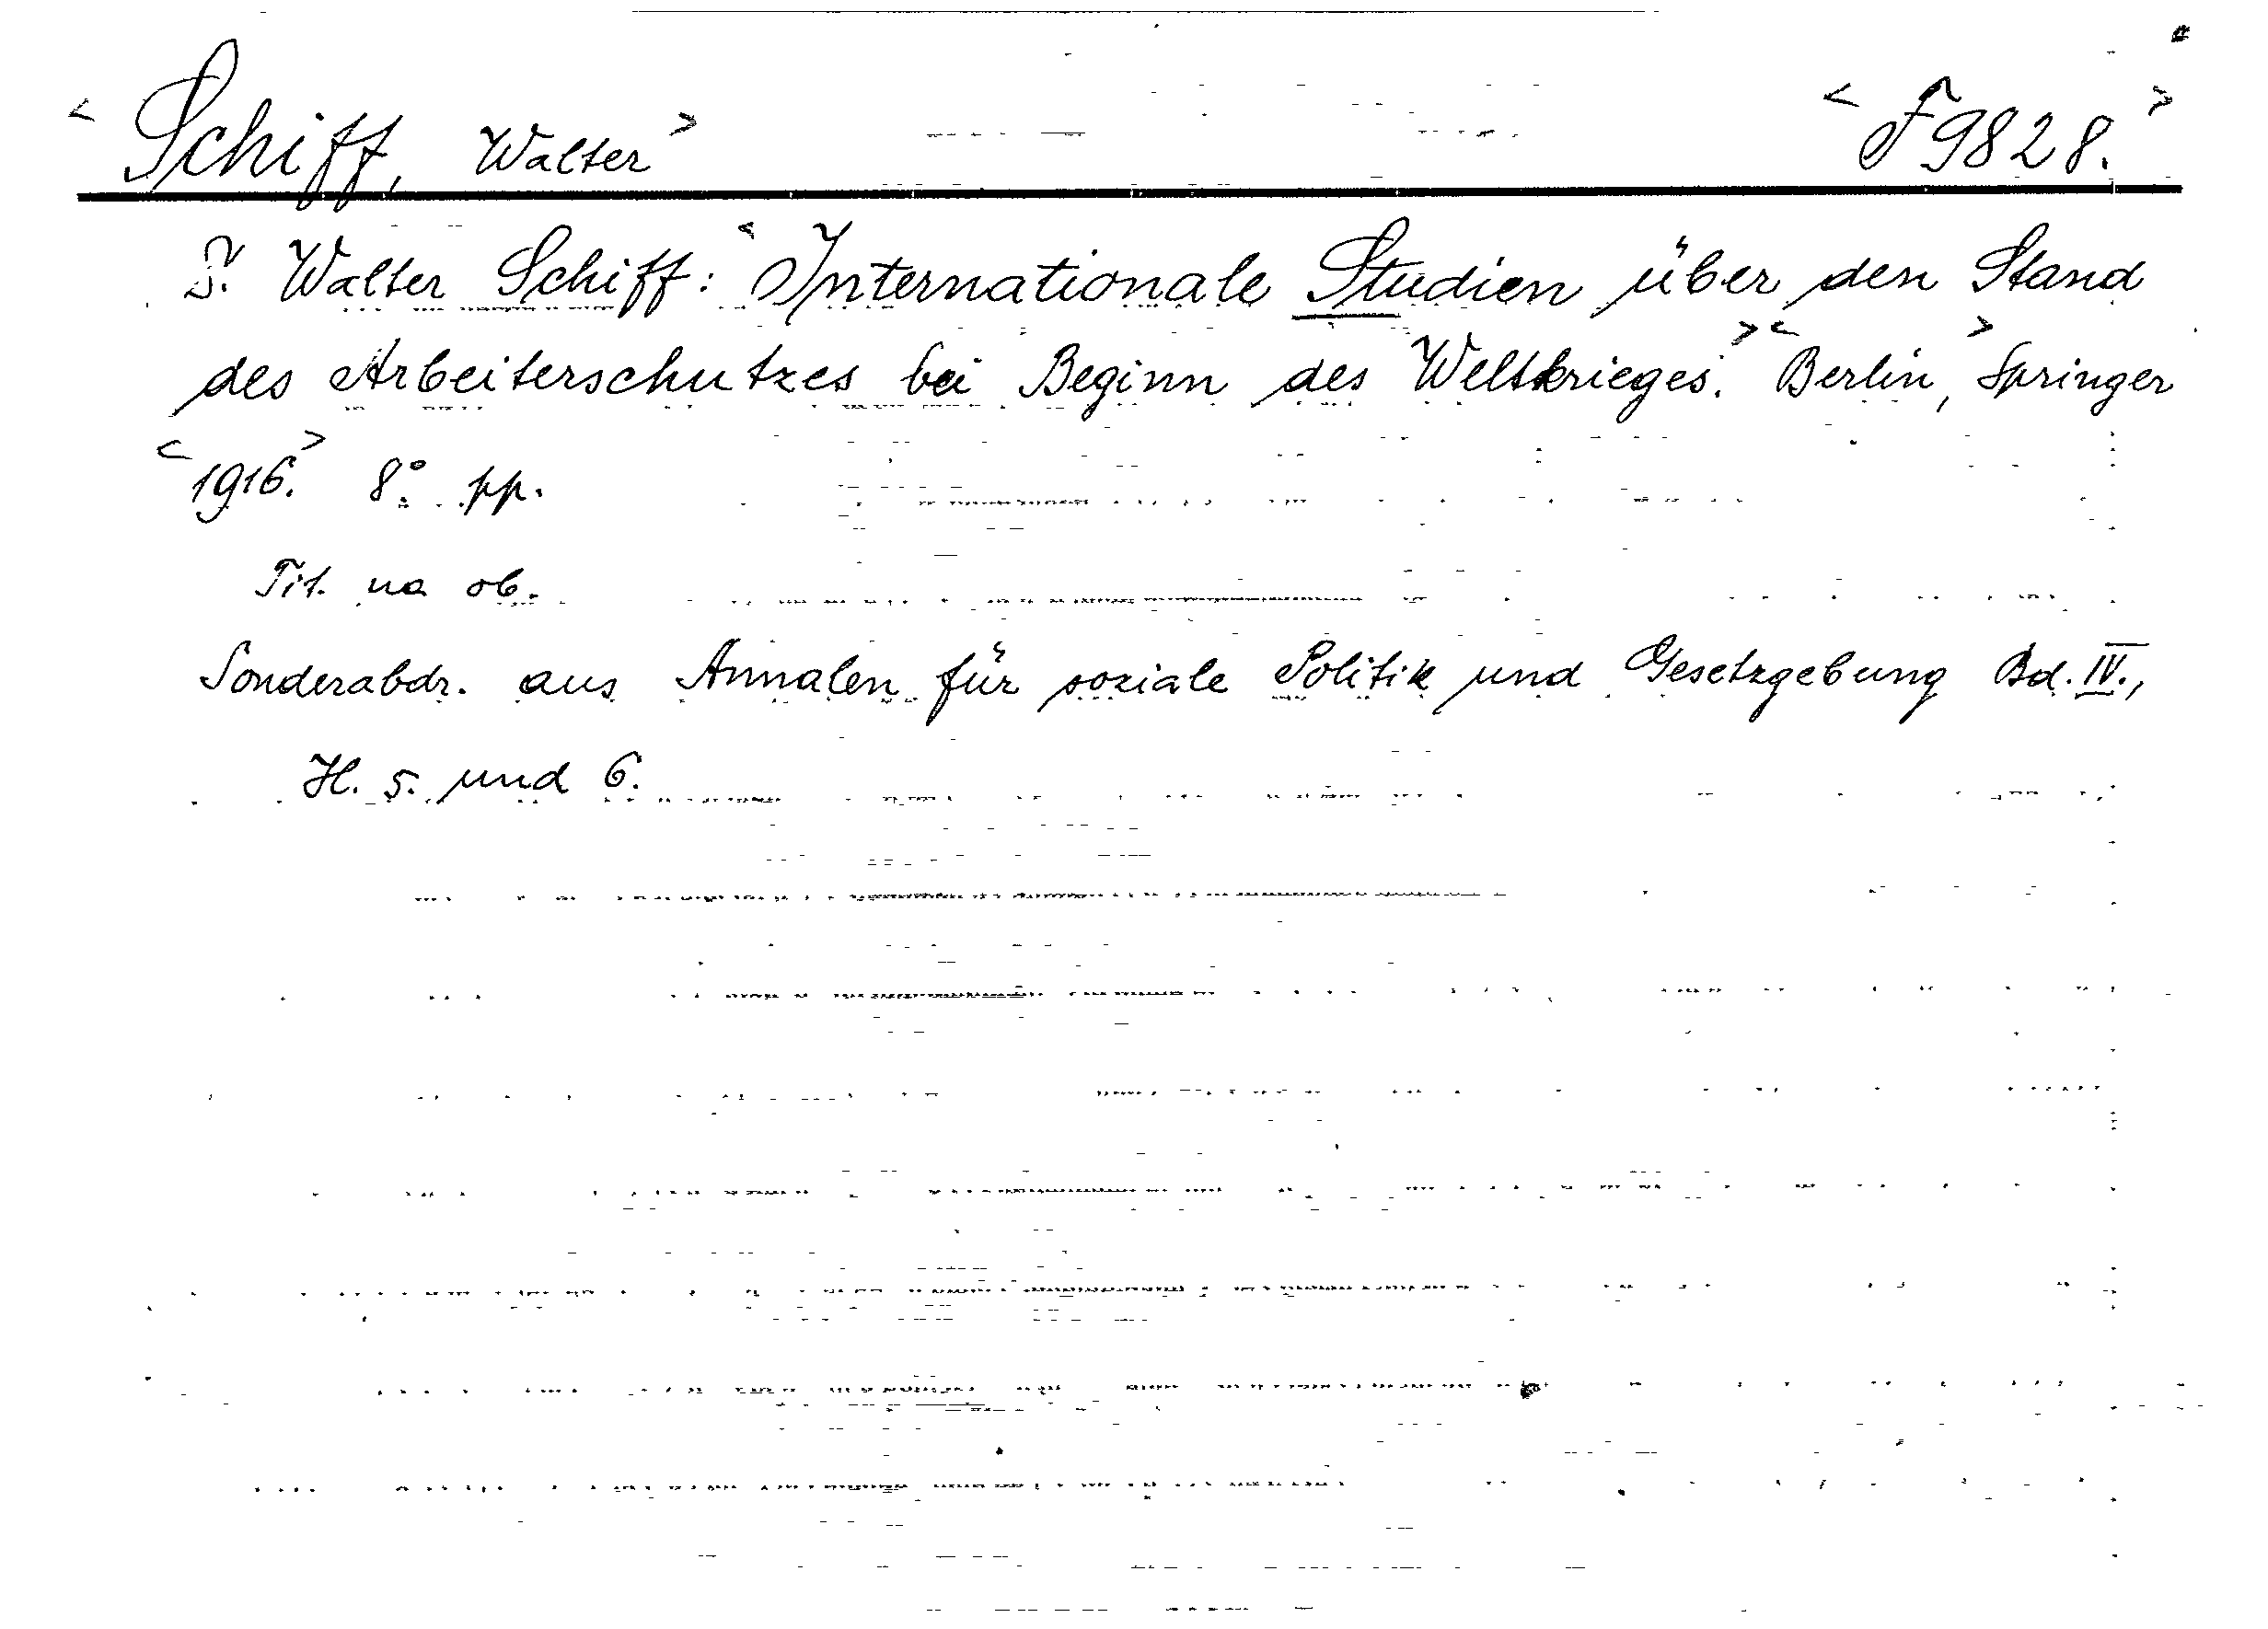 <Schiff, Walter> <F 9828.>
Walter Schiff: <Internationale Studien über den Stand
des Arbeiterschutzes bei Beginn des Weltkrieges.> <Berlin,> Springer
<1916.> 8°. pp.
Tit. na ob.
Sonderabdr. aus Annalen für soziale Politik und Gesetzgebung Bd. IV.,
H. 5. und 6.